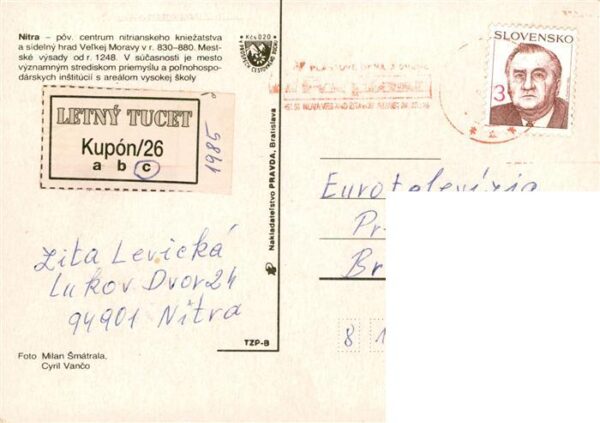 Nitra – pôv. centrum nitrianskeho kniežatstva
a sídelný hrad Veľkej Moravy v r. 830–880. Mest-
ské výsady od r. 1248. V súčasnosti je mesto
významným strediskom priemyslu a poľnohospo-
dárskych inštitúcií s areálom vysokej školy
Kčs 020
LETNÝ TUCET
Kupón/26
a b c
1985
Zita Levická
Lukov Dvor 24
94901 Nitra
Foto Milan Šmátrala,
Cyril Vančo
Nakladateľstvo PRAVDA, Bratislava
TZP-B
SLOVENSKO
3
Eurotelevízia
Pr
Br
8 1